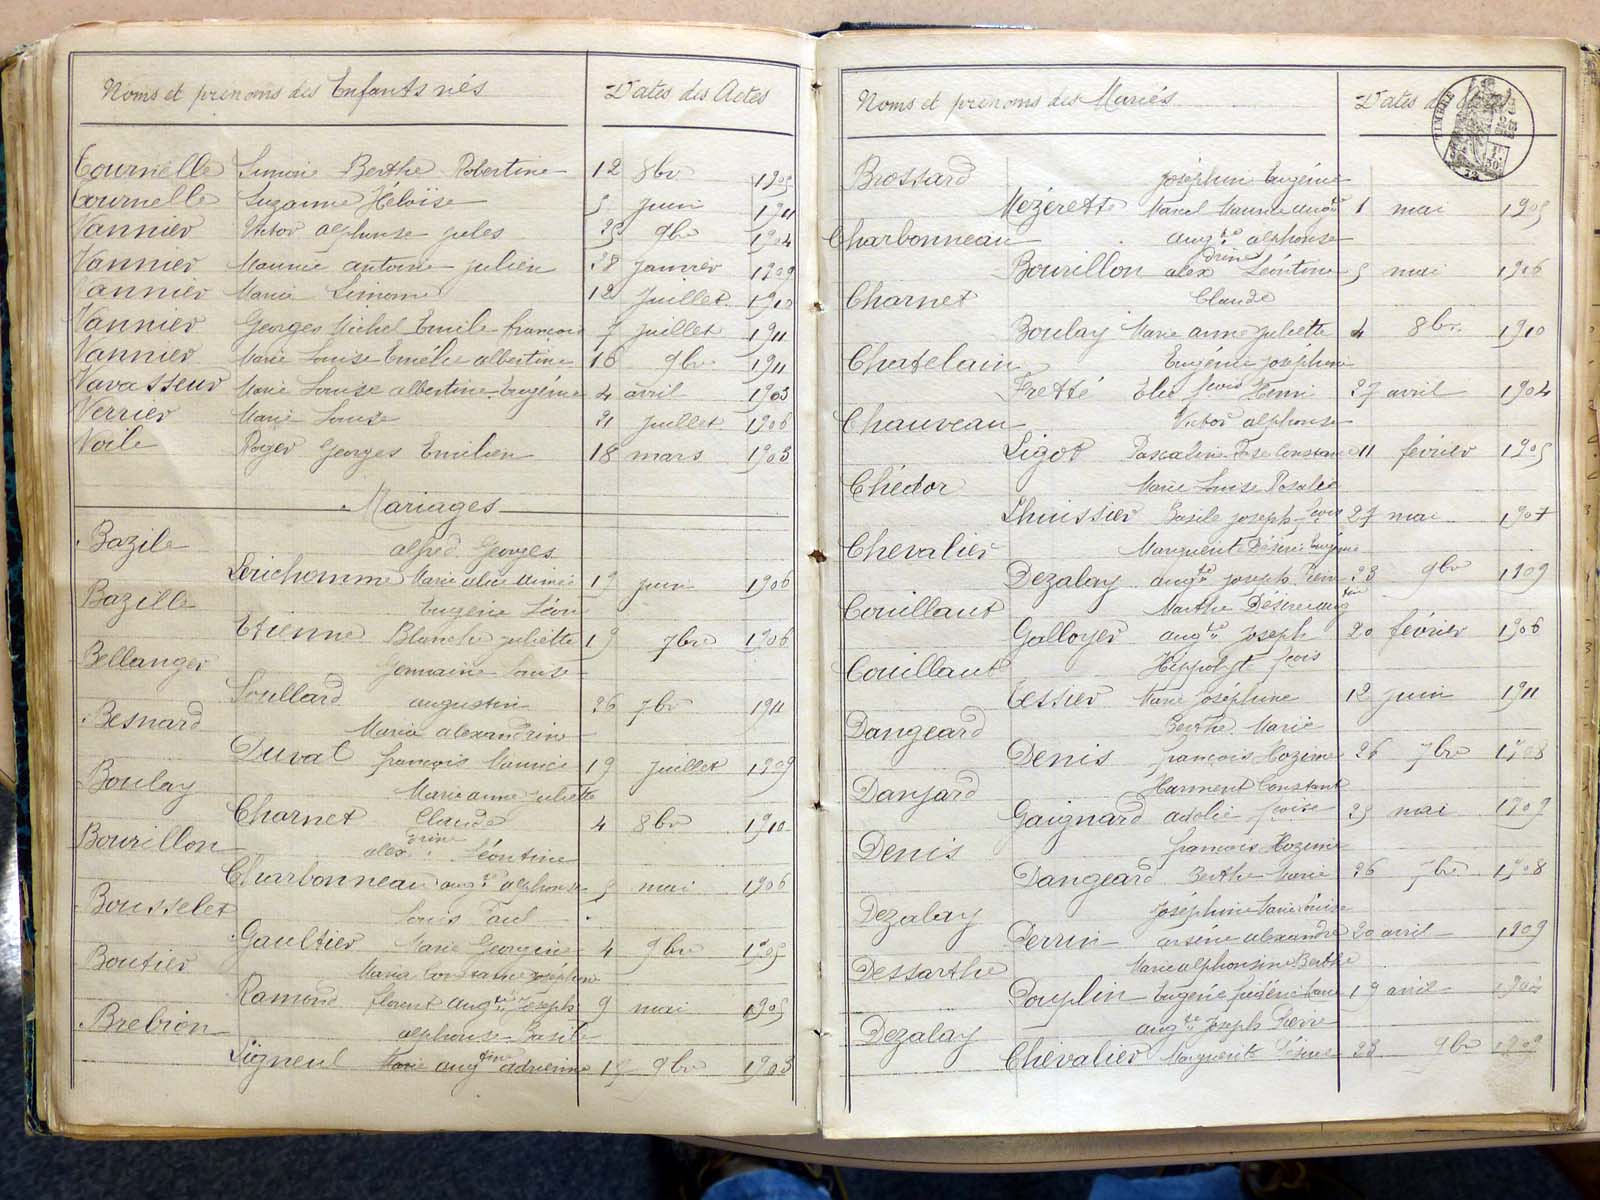 Noms et prénoms des Enfants nés Dates des Actes
Tournelle Simone Berthe Robertine 12 8bre 1905
Tournelle Suzanne Héloïse 5 juin 1911
Vannier Victor alphonse jules 9bre 1904
Vannier Maurice antoine julien 28 janvier 1909
Vannier Marie Simone 12 Juillet 1910
Vannier Georges Michel Emile françois 7 juillet 1911
Vannier Marie Louise Emélie albertine 16 9bre 1911
Vavasseur Marie Louise albertine Eugénie 4 avril 1903
Verrier Marie Louise 21 juillet 1906
Voile Roger Georges Emilien 18 mars 1903
Mariages
Bazile alfred Georges
Lerichomme Marie alice aimée 19 juin 1906
Bazille Eugène Léon
Etienne Blanche juliette 19 7bre 1906
Bellanger Germaine Louise
Soullard augustin 26 7bre 1911
Besnard Maria alexandrine
Duval françois Maurice 19 juillet 1909
Boulay Marie anne juliette
Charnet Claude 4 8bre 1910
Bourillon alexdrine Léontine
Charbonneau augte alphonse 5 mai 1906
Bousselet Louis Paul
Gaultier Marie Georgine 4 9bre 1905
Boutier Maria Constance joséphine
Ramond florent augte Joseph 9 mai 1905
Brebion alphonse Basile
Ligneul Marie augtine adrienne 15 9bre 1903
Noms et prénoms des Mariés Dates des
TIMBRE
Brossard joséphine Eugénie
Mézerette Marcel Maurice augte 1 mai 1905
Charbonneau augte alphonse
Bourillon alexdrine Léontine 5 mai 1906
Charnet Claude
Boulay Marie anne juliette 4 8bre 1910
Chatelain Eugénie joséphine
Fretté Elie fcois Henri 27 avril 1904
Chauveau Victor alphonse
Ligot Pascaline Rose Constance 11 février 1905
Chédor Marie Louise Rosalie
Lhuissier Basile joseph fcois 27 mai 1907
Chevalier Marguerite Désirée Eugénie
Dezalay augte joseph Pierre 23 9bre 1909
Couillaut Marthe Désirée augtine
Galloyer augte Joseph 20 février 1906
Couillaut Hippolyte fcois
Tessier Marie Joséphine 12 juin 1911
Dangeard Berthe Marie
Denis françois Hozime 26 7bre 1908
Danjard Harment Constant
Gaignard adolie fcoise 25 mai 1909
Denis françois Hozime
Dangeard Berthe Marie 26 7bre 1908
Dezalay Joséphine Marie Louise
Perrin arsène alexandre 20 avril 1909
Dessarthe Marie alphonsine Berthe
Pouplin Eugène frédéric 19 avril
Dezalay augte Joseph Pierre
Chevalier Marguerite Désirée 23 9bre 1909